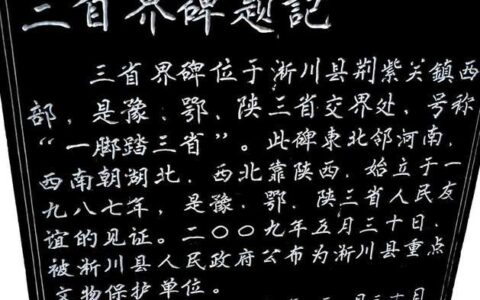 三省界碑题記
三省界碑位于淅川县荆紫关鎮西
部，是豫、鄂、陕三省交界处，号称
“一脚踏三省”。此碑東北邻河南，
西南朝湖北，西北靠陕西，始立于一
九八七年，是豫、鄂、陕三省人民友
谊的见证。二〇〇九年五月三十日，
被淅川县人民政府公布为淅川县重点
文物保护单位。